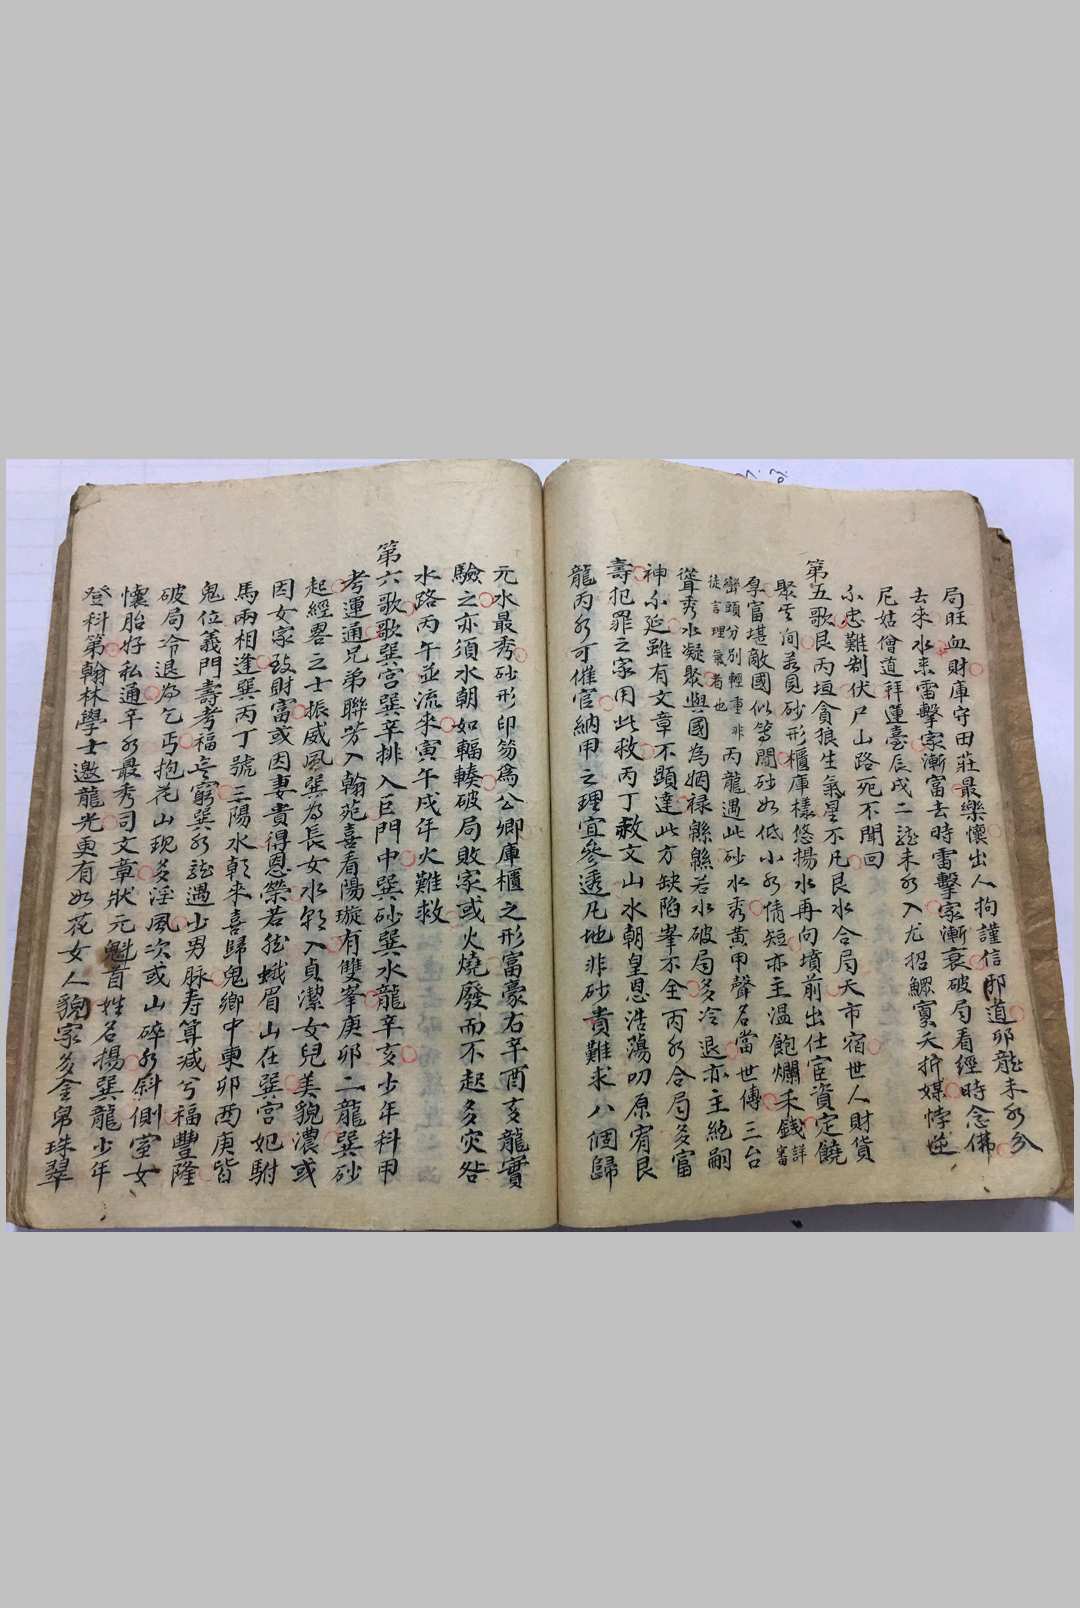 局旺血財庫守田莊最樂懷出人拘謹信邪道卯龍未水分
去來水来雷擊家漸富去時雷擊家漸衰破局看經時念佛
尼姑僧道拜蓮臺辰戌二龍未水入尤招鰥寡夭折媒悖逆
小忠難制伏尸山路死不聞回
第五歌艮丙垣貪狼生氣星不凡艮水合局天市宿世人財貨
聚其间若見砂形櫃庫樣悠揚水再向墳前出仕宦資定饒
享富堪敵國似等閒砂如低小水情短亦主温飽爛禾錢詳審
巒頭分别輕重非
徒言理氣者也
丙龍遇此砂水秀黄甲聲名當世傳三台
聳秀水凝聚與國為姻禄綿綿若水破局多冷退亦主絶嗣
神不延雖有文章不顯達此方缺陷峯不全丙水合局多富
壽犯罪之家用此救丙丁赦文山水朝皇恩浩蕩叨原宥艮
龍丙水可催官納甲之理宜參透凡地非砂貴難求八個歸
元水最秀砂形印笏爲公卿庫櫃之形富豪右辛酉亥龍實
驗之亦須水朝如輻輳破局敗家或火燒廢而不起多灾咎
水路丙午並流来寅午戌年火難救
第六歌歌巽宫巽辛排入巨門中巽砂巽水龍辛亥少年科甲
考運通兄弟聯芳入翰苑喜看陽璇有雙峯庚卯二龍巽砂
起經畧之士振威風巽為長女水朝入貞潔女兒美貌濃或
因女家致財富或因妻貴得恩榮若能蛾眉山在巽宫妃駙
馬兩相逢巽丙丁號三陽水朝来喜歸鬼鄉中東卯酉庚皆
鬼位義門壽考福无窮巽水龍遇少男脉寿算减兮福豐隆
破局冷退為乞丐抱花山現多淫風次或山碎水斜側室女
懷胎好私通辛水最秀司文章狀元魁首姓名揚巽龍少年
登科第翰林學士邀龍光更有如花女人貌家多金帛珠翠